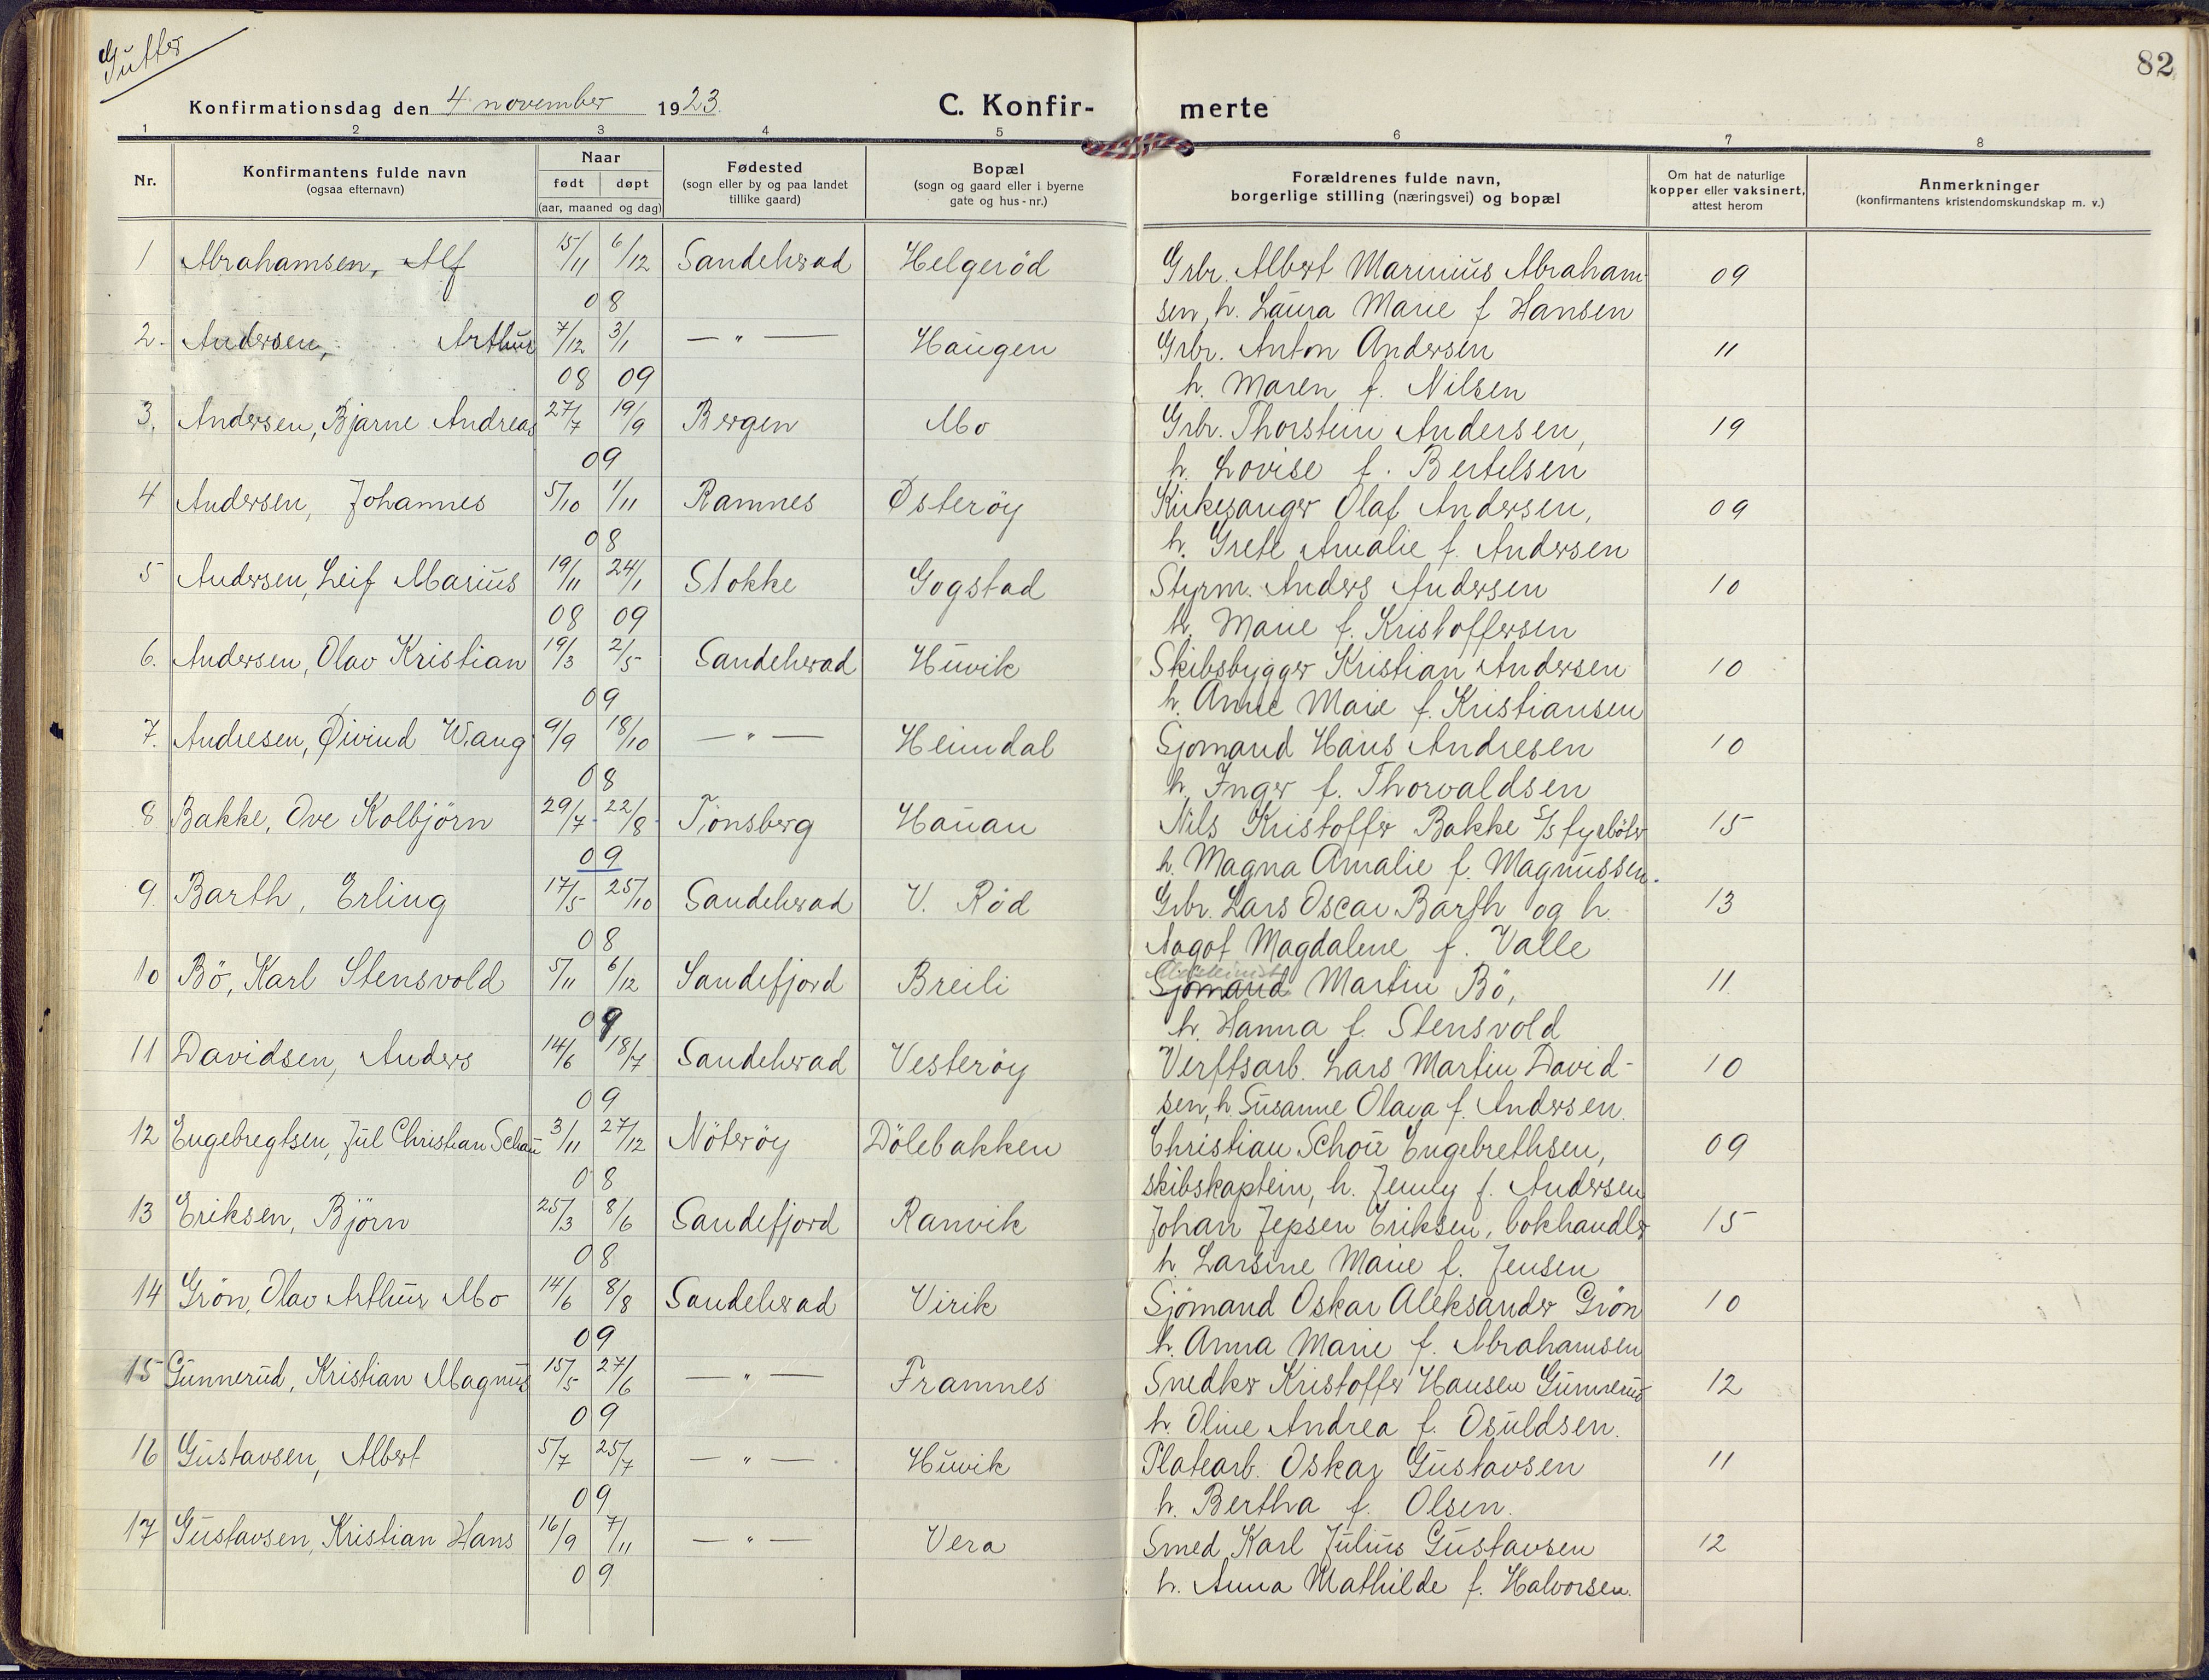 Gutter
82
Konfirmationsdag den 4 november 1923.
C. Konfir- merte
1 2 3 4 5 6 7 8
Nr.
Konfirmantens fulde navn
(ogsaa efternavn)
Naar
født døpt
(aar, maaned og dag)
Fødested
(sogn eller by og paa landet
tillike gaard)
Bopæl
(sogn og gaard eller i byerne
gate og hus-nr.)
Forældrenes fulde navn,
borgerlige stilling (næringsvei) og bopæl
Om hat de naturlige
kopper eller vaksinert,
attest herom
Anmerkninger
(konfirmantens kristendomskundskap m. v.)
1 Abrahamsen, Alf 15/11 6/12 Sandeherad Helgeröd Grbr. Albert Marinius Abraham- 09
08 sen, h. Laura Marie f Hansen
2. Andersen, Arthur 7/12 3/1 — " — Haugen Grbr. Anton Andersen 11
08 09 h. Maren f. Nilsen
3. Andersen, Bjarne Andreas 27/7 19/9 Bergen Mo Grbr. Thorstein Andersen, 19
09 h. Lovise f. Bertelsen
4 Andersen, Johannes 5/10 1/11 Ramnes Østerøy Kirkesanger Olaf Andersen, 09
08 h. Grete Amalie f. Andersen
5 Andersen, Leif Marius 19/11 24/1 Stokke Gogstad Styrm. Anders Andersen 10
08 09 h. Marie f. Kristoffersen
6. Andersen, Olav Kristian 19/3 2/5 Sandeherad Huvik Skibsbygger Kristian Andersen 10
09 h. Anne Marie f. Kristiansen
7. Andresen, Øivind Wang 9/9 18/10 — " — Heimdal Sjömand Hans Andresen 10
08 h. Inger f. Thorvaldsen
8 Bakke, Ove Kolbjörn 29/7 22/8 Tönsberg Hauan Nils Kristoffer Bakke S/S fyrböter 15
09 h. Magna Amalie f. Magnussen.
9. Barth, Erling 17/5 25/10 Sandeherad V. Röd Grbr. Lars Oscar Barth og h. 13
08 Aagot Magdalene f. Valle
10 Bö, Karl Stensvold 5/11 6/12 Sandefjord Breili Maskinist Sjömand Martin Bö, 11
09 h. Hanna f. Stensvold
11 Davidsen, Anders 14/6 18/7 Sandeherad Vesterøy Verftsarb. Lars Martin David- 10
09 sen, h. Susanne Olava f. Andersen.
12 Engebregtsen, Jul Christian Schau 3/11 27/12 Nöterøy Dölebakken Christian Schou Engebrethsen, 09
08 skibskaptein, h. Jenny f. Andersen
13 Eriksen, Björn 25/3 8/6 Sandefjord Ranvik Johan Jepsen Eriksen, bokhandler 15
08 h. Larsine Marie f. Jensen
14 Grön, Olav Arthur Mo 14/6 8/8 Sandeherad Virik Sjömand Oskar Aleksander Grön 10
09 h. Anna Marie f. Abrahamsen
15 Gunnerud, Kristian Magnus 15/5 27/6 — " — Framnes Snedker Kristoffer Hansen Gunnerud 12
09 h. Oline Andrea f. Osuldsen.
16 Gustavsen, Albert 5/7 25/7 — " — Huvik Platearb. Oskar Gustavsen 11
09 h. Bertha f. Olsen.
17 Gustavsen, Kristian Hans 16/9 7/11 — " — Vera Smed Karl Julius Gustavsen 12
09 h. Anna Mathilde f. Halvorsen.